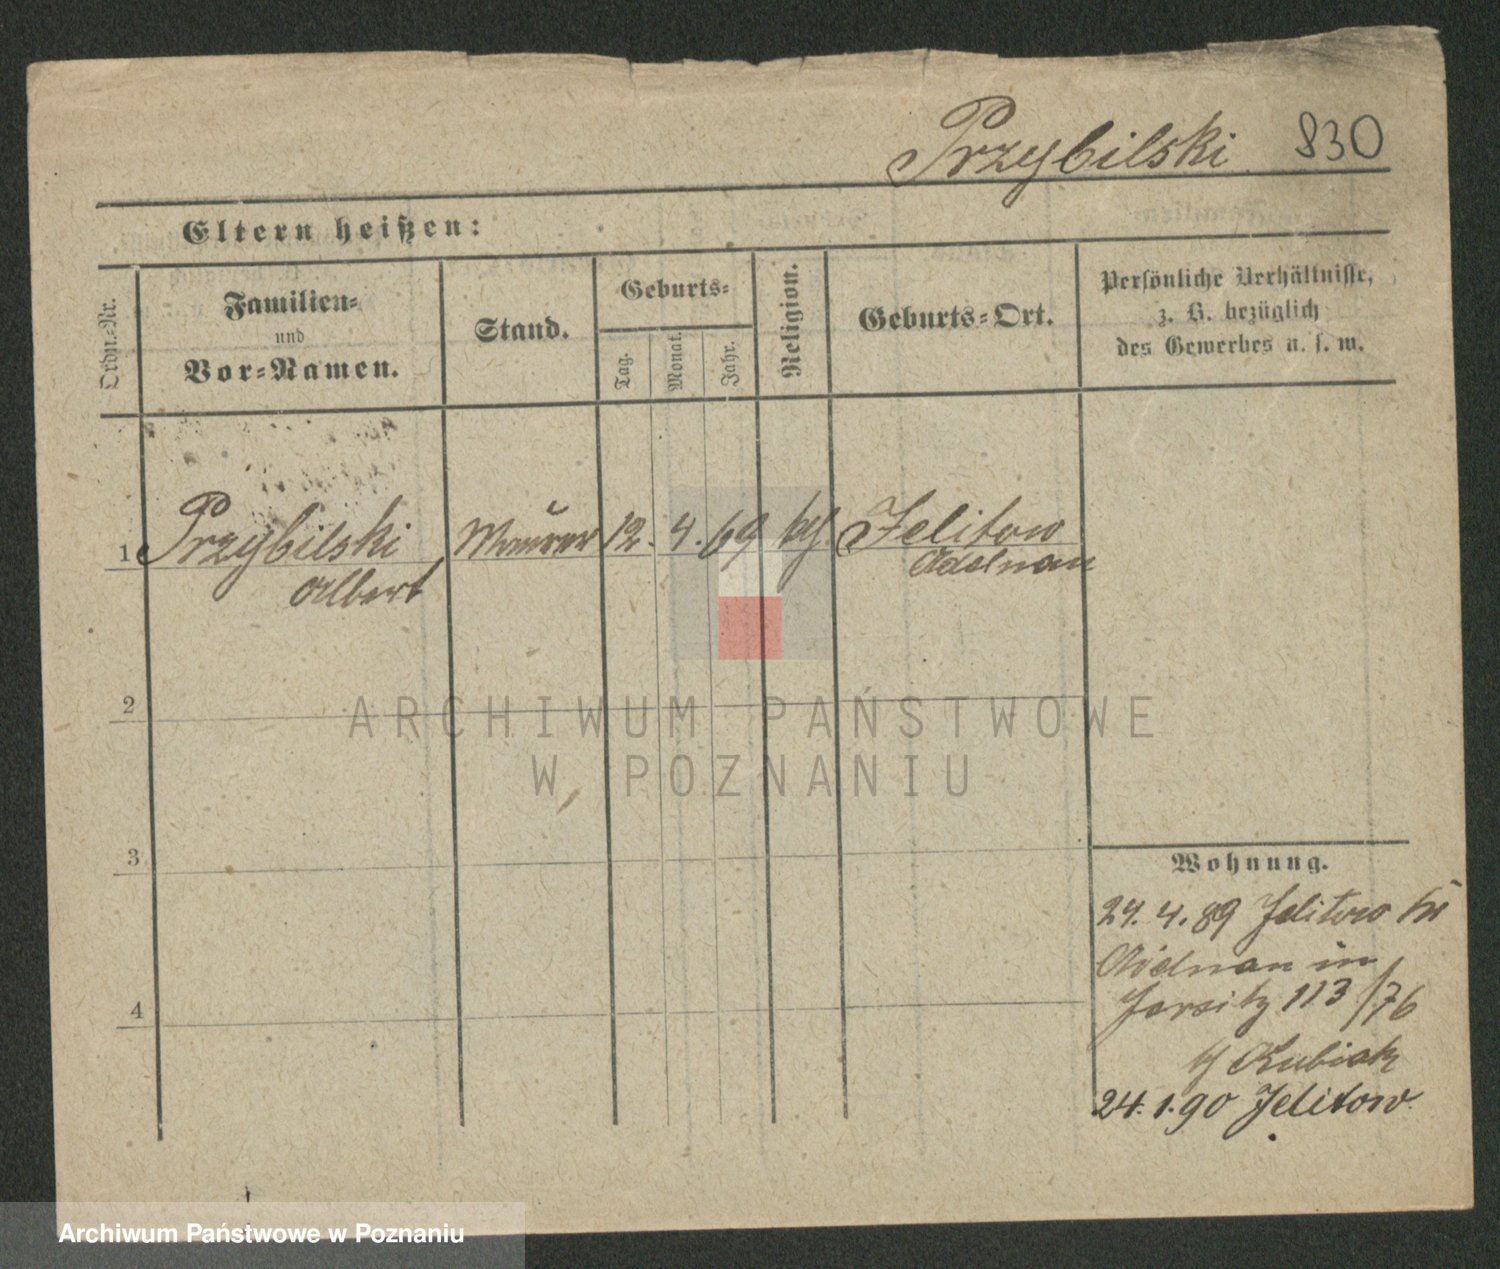 Przybilski 830
Eltern heißen:
Ordn.-Nr.
Familien-
und
Vor-Namen.
Stand.
Geburts-
Tag.
Monat.
Jahr.
Religion.
Geburts-Ort.
Persönliche Verhältnisse,
z. B. bezüglich
des Gewerbes u. s. w.
1 Przybilski Maurer 12. 4. 69 Jelitow
Albert Adelnau
2
3
4
Wohnung.
24. 4. 89 Jelitow Kr
Adelnau in
Jersitz 113/76
b/ Kubiak
24.1.90 Jelitow.
ARCHIWUM PAŃSTWOWE
W POZNANIU
Archiwum Państwowe w Poznaniu